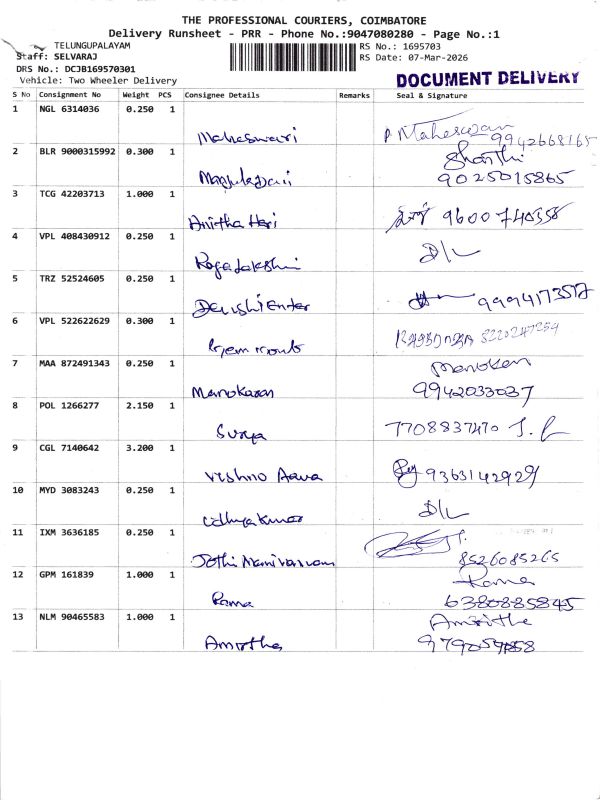 THE PROFESSIONAL COURIERS, COIMBATORE
Delivery Runsheet - PRR - Phone No.:9047080280 - Page No.:1
TELUNGUPALAYAM
RS No.: 1695703
Staff: SELVARAJ
RS Date: 07-Mar-2026
DRS No.: DCJB169570301
Vehicle: Two Wheeler Delivery
DOCUMENT DELIVERY
S No Consignment No Weight PCS Consignee Details Remarks Seal & Signature
1 NGL 6314036 0.250 1
Maheswari P Maheswari 9942668165
2 BLR 9000315992 0.300 1 Shanthi
9025015865
3 TCG 42203713 1.000 1
Anitha Hari 9600740358
4 VPL 408430912 0.250 1
Rajalakshmi D/L
5 TRZ 52524605 0.250 1
Enter
6 VPL 522622629 0.300 1
7 MAA 872491343 0.250 1 Manokaran
Manokaran 9942033037
8 POL 1266277 2.150 1
Surya 7708837470
9 CGL 7140642 3.200 1
Vishno 9363142929
10 MYD 3083243 0.250 1
D/L
11 IXM 3636185 0.250 1
Jothi Manivannan 8526085265
12 GPM 161839 1.000 1 Rama
Rama 6380885845
13 NLM 90465583 1.000 1 Amritha
Amrtha